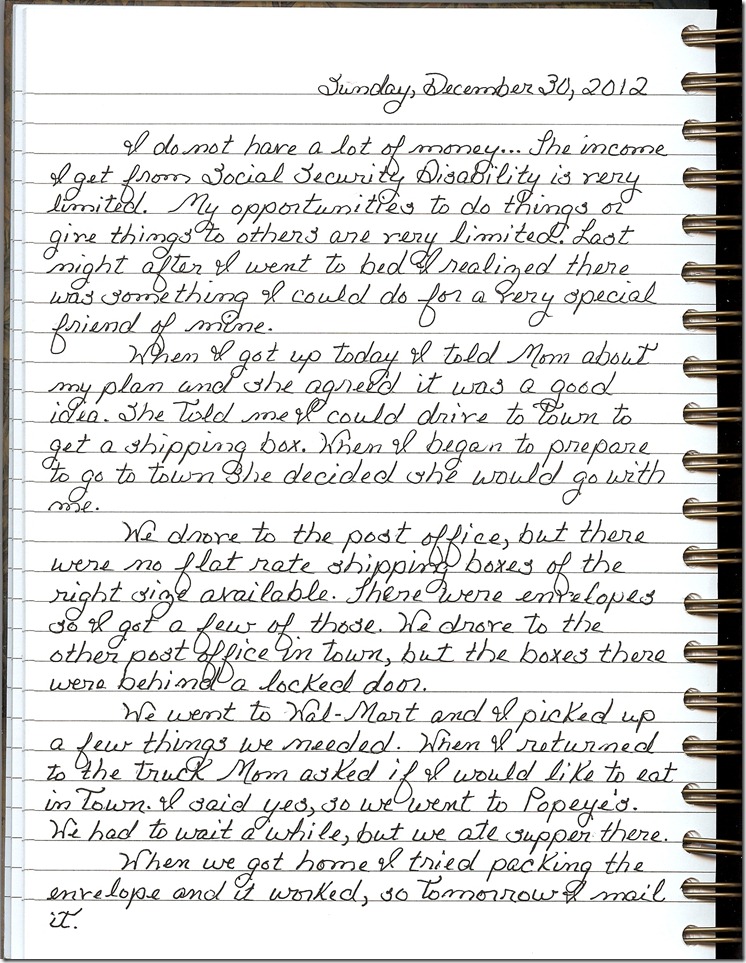 Sunday, December 30, 2012
I do not have a lot of money... The income
I get from Social Security Disability is very
limited. My opportunities to do things or
give things to others are very limited. Last
night after I went to bed I realized there
was something I could do for a very special
friend of mine.
When I got up today I told Mom about
my plan and she agreed it was a good
idea. She told me I could drive to town to
get a shipping box. When I began to prepare
to go to town she decided she would go with
me.
We drove to the post office, but there
were no flat rate shipping boxes of the
right size available. There were envelopes
so I got a few of those. We drove to the
other post office in town, but the boxes there
were behind a locked door.
We went to Wal-Mart and I picked up
a few things we needed. When I returned
to the truck Mom asked if I would like to eat
in town. I said yes, so we went to Popeye's.
We had to wait a while, but we ate supper there.
When we got home I tried packing the
envelope and it worked, so tomorrow I mail
it.